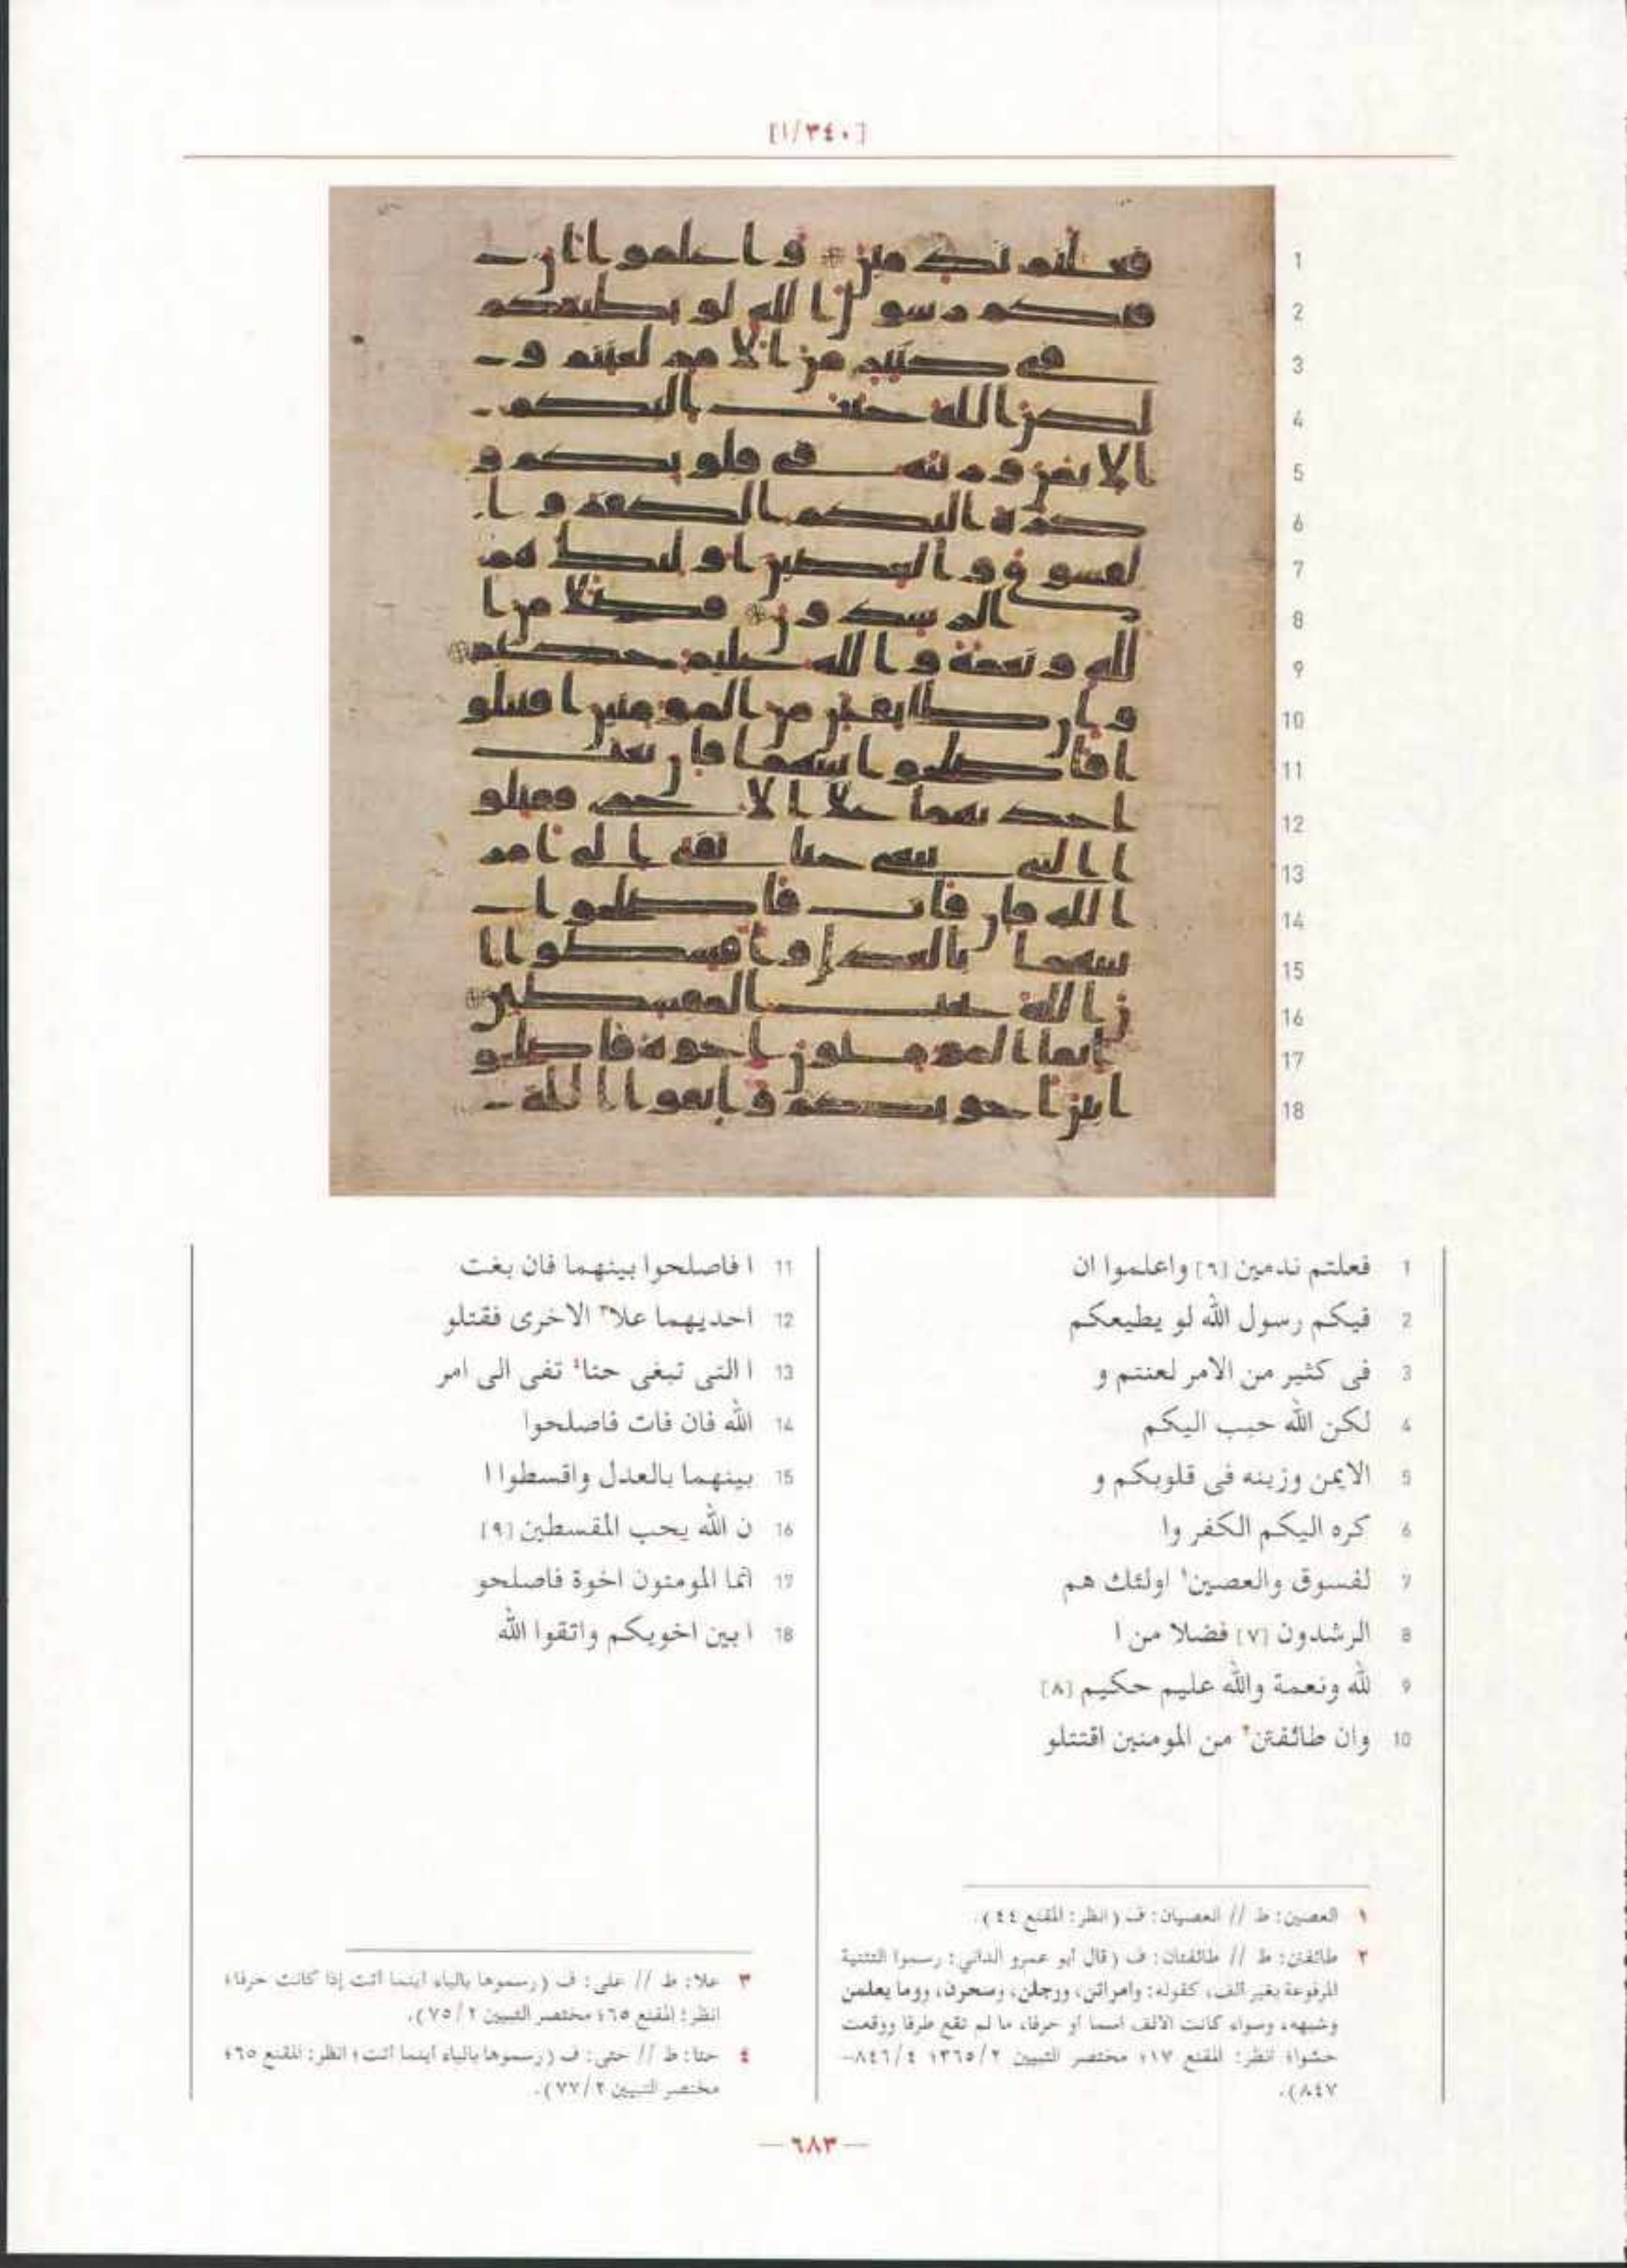 [٣٤٠/١]
1 فعلتم ندمين [٦] واعلموا ان
2 فيكم رسول الله لو يطيعكم
3 فى كثير من الامر لعنتم و
4 لكن الله حبب اليكم
5 الايمن وزينه فى قلوبكم و
6 كره اليكم الكفر وا
7 لفسوق والعصين١ اولئك هم
8 الرشدون [٧] فضلا من ا
9 لله ونعمة والله عليم حكيم [٨]
10 وان طائفتن٢ من المومنين اقتتلو
11 ا فاصلحوا بينهما فان بغت
12 احديهما علا٣ الاخرى فقتلو
13 ا التى تبغى حتا٤ تفى الى امر
14 الله فان فات فاصلحوا
15 بينهما بالعدل واقسطوا ا
16 ن الله يحب المقسطين [٩]
17 انما المومنون اخوة فاصلحو
18 ا بين اخويكم واتقوا الله
١ العصين: ط // العصيان: ف (انظر: المقنع ٤٤).
٢ طائفتن: ط // طائفتان: ف (قال أبو عمرو الداني: رسموا التثنية
المرفوعة بغير ألف، كقوله: وامراتن، ورجلن، وسحرن، وما يعلمن
وشبهه، وسواء كانت الألف اسما أو حرفا، ما لم تقع طرفا ووقعت
حشوا؛ انظر: المقنع ١٧؛ مختصر التبيين ٣٦٥/٢؛ ٨٤٦/٤–
٨٤٧).
٣ علا: ط // على: ف (رسموها بالياء أينما أتت إذا كانت حرفا؛
انظر: المقنع ٦٥؛ مختصر التبيين ٧٥/٢).
٤ حتا: ط // حتى: ف (رسموها بالياء أينما أتت؛ انظر: المقنع ٦٥؛
مختصر التبيين ٧٧/٢).
— ٦٨٣ —